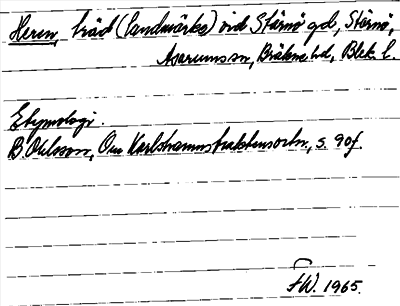 Herrn, träd (landmärke) vid Stärnö gd, Stärnö,
Asarums sn, Bräkne hd, Blek. l.
Etymologi.
B Ohlsson, Om Karlshamnstraktens ortn., s. 90f.
FW. 1965.